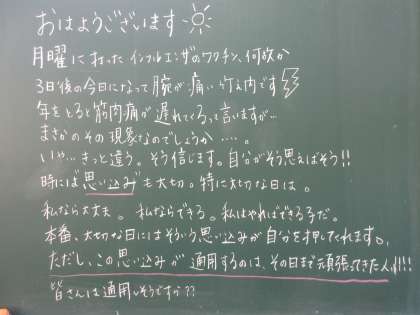 おはようございます
月曜に打ったインフルエンザのワクチン、何故か
3日後の今日になって腕が痛い竹内です
年をとると筋肉痛が遅れてくるって言いますが…
まさかのその現象なのでしょうか…。
いや…きっと違う。そう信じます。自分がそう思えばそう!!
時には思い込みも大切。特に大切な日は。
私なら大丈夫。私ならできる。私はやればできる子だ。
本番、大切な日にはそういう思い込みが自分を押してくれます。
ただし、この思い込みが通用するのは、その日まで頑張ってきた人!!!
皆さんは通用しそうですか??